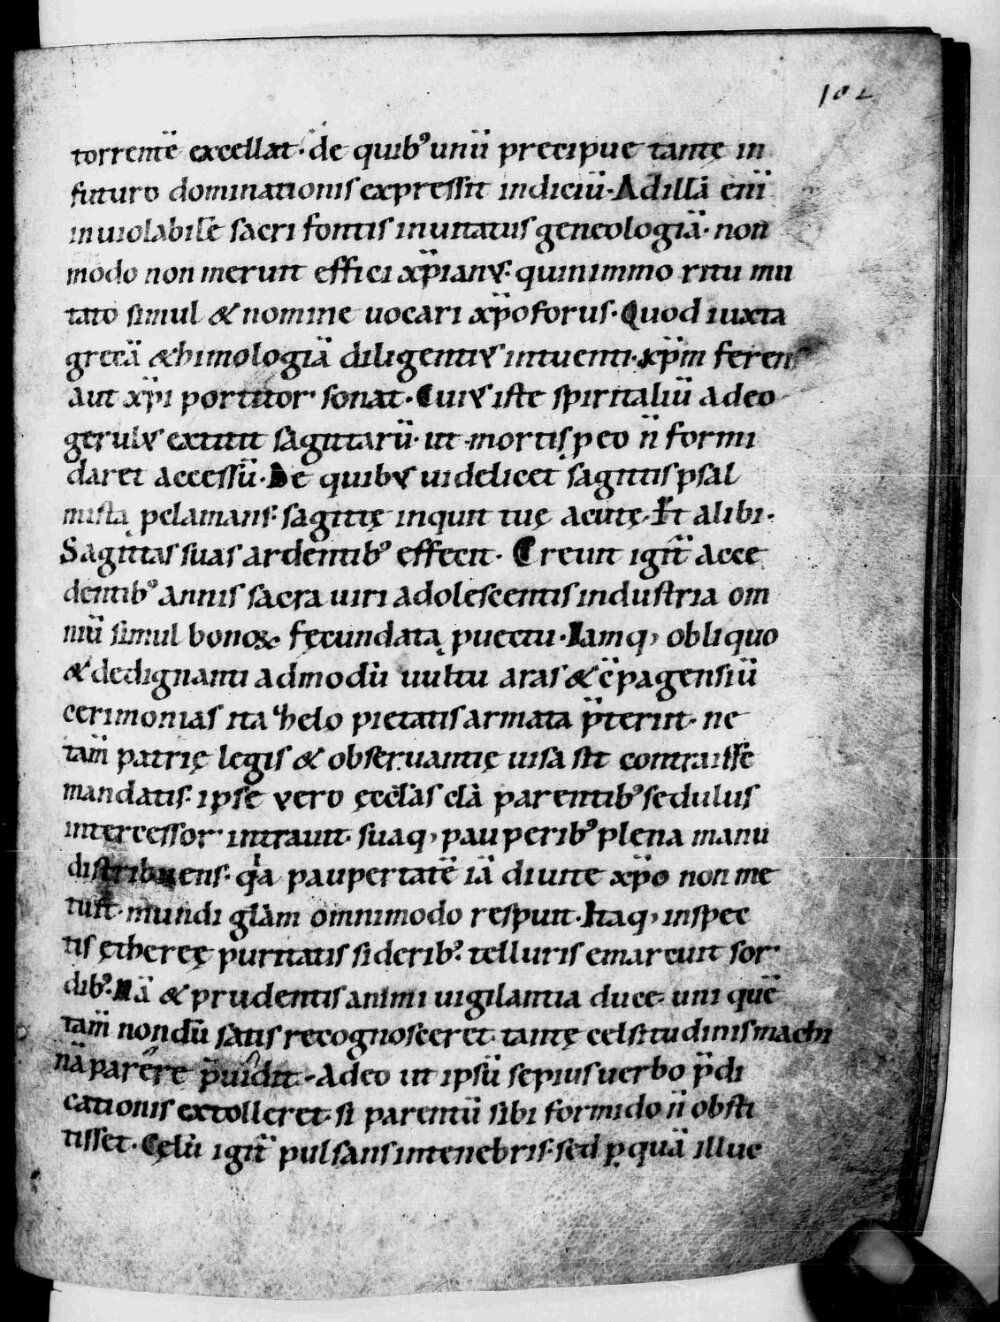 102
torrentē excellat · de quibꝰ unū precipue tantę in
futuro dominationis expressit indiciū · Ad illā enī
inuiolabilē sacri fontis inuitatus geneologiā · non
modo non meruit effici xp̄ianꝰ · quinimmo ritu mu
tato simul & nomine uocari xp̄oforus · Quod iuxta
grecā &himologiā diligentiꝰ intuenti · xp̄m ferens
aut xp̄i portitor sonat · Cuiꝰ iste spiritaliū adeo
gerulꝰ extitit sagittarū · ut mortis ꝓ eo n̄ formi
daret accessū · De quibꝰ uidelicet sagittis psal
mista ꝓclamans · sagittę inquit tuę acutę · Et alibi ·
Sagittas suas ardentibꝰ effecit · Creuit igit̄ acce
dentibꝰ annis sacra uiri adolescentis industria om
niū simul bonoꝝ fęcundata ꝓuectu · Namq; obliquo
& dedignanti admodū uultu aras & c̄pagensiū
cerimonias ita helo pietatis armata p̄teriit · ne
tam̄ patrię legis & obseruantię uisa sit contraisse
mandatis · ipse vero ęcclās clā parentibꝰ sedulus
intercessor intrauit · suaq; pauperibꝰ plena manu
distribuens · q̓a paupertatē iā diuite xp̄o non me
tuit · mundi glām omnimodo respuit · Itaq; inspec
tis ęthereę puritatis sideribꝰ · telluris emarcuit sor
dibꝰ · Nā & prudentis animi uigilantia duce · uni quē
tam̄ nondū satis recognosceret · tantę celsitudinis machi
nā parēre p̄uidit · Adeo ut ipsū sepius uerbo p̄di
cationis extolleret · si parentū sibi formido n̄ obsti
tisset · Cęlū igit̄ pulsans in tenebris · sed ꝑ quā illuc